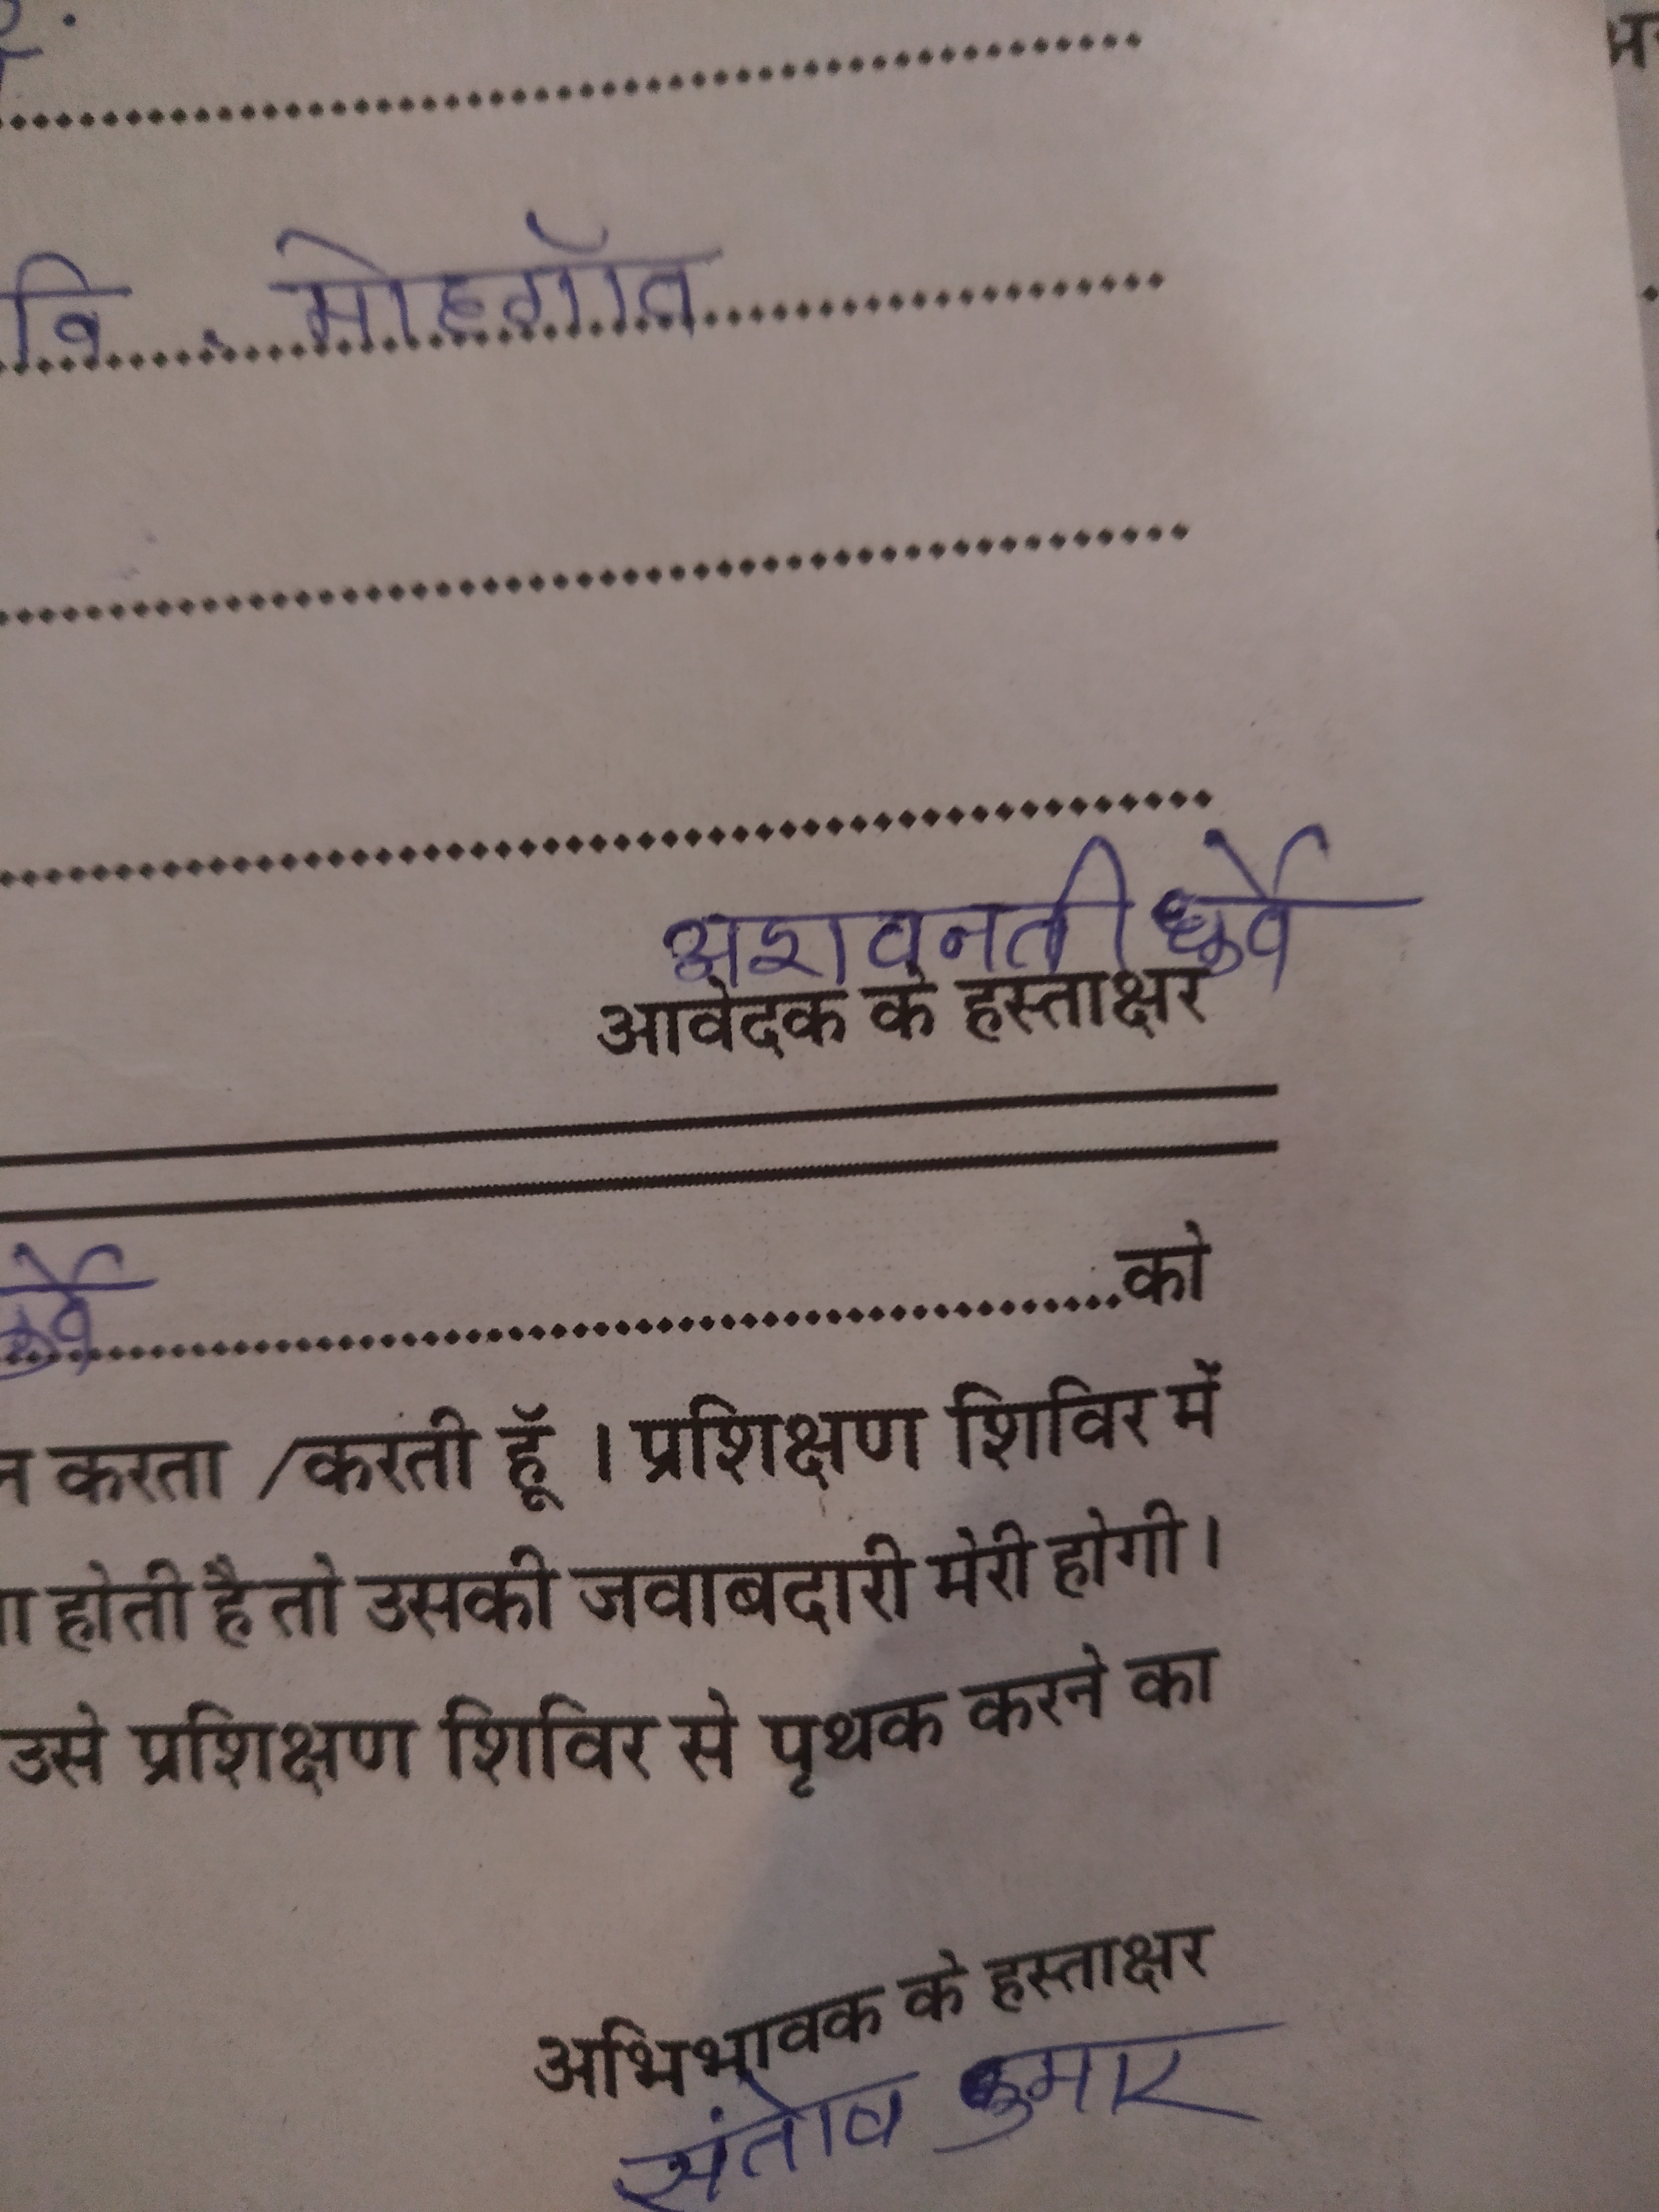 वि . मोहगॉव
अशवनती धुर्वे
आवेदक के हस्ताक्षर
को
करता /करती हूॅ । प्रशिक्षण शिविर में
होती है तो उसकी जवाबदारी मेरी होगी ।
उसे प्रशिक्षण शिविर से पृथक करने का
अभिभावक के हस्ताक्षर
संतोष कुमार